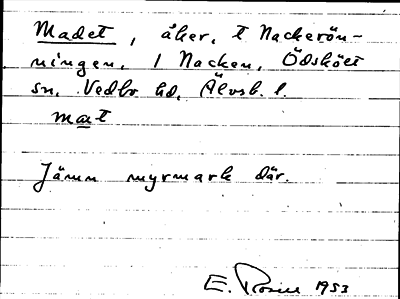 Madet, åker, t Nackerön-
ningen, 1 Nacken, Ödskölt
sn, Vedbo hd, Älvsb. l.
mat
Jämn myrmark där.
E. Rosell 1953